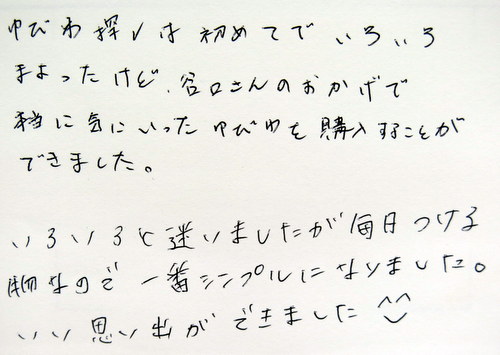 ゆびわ探しは初めてでいろいろ
まよったけど、谷口さんのおかげで
本当に気にいったゆびわを購入することが
できました。
いろいろと迷いましたが毎日つける
物なので一番シンプルになりました。
いい思い出ができました^^